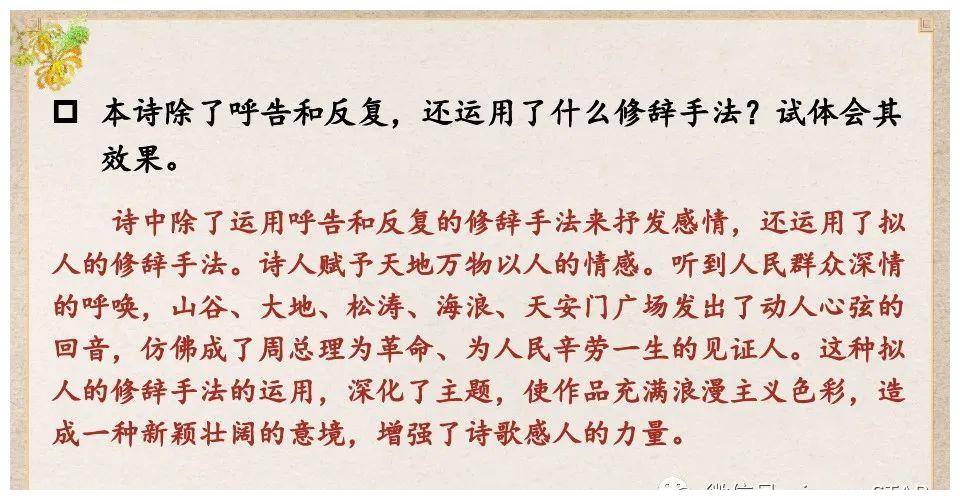 本诗除了呼告和反复，还运用了什么修辞手法？试体会其
效果。
诗中除了运用呼告和反复的修辞手法来抒发感情，还运用了拟
人的修辞手法。诗人赋予天地万物以人的情感。听到人民群众深情
的呼唤，山谷、大地、松涛、海浪、天安门广场发出了动人心弦的
回音，仿佛成了周总理为革命、为人民辛劳一生的见证人。这种拟
人的修辞手法的运用，深化了主题，使作品充满浪漫主义色彩，造
成一种新颖壮阔的意境，增强了诗歌感人的力量。